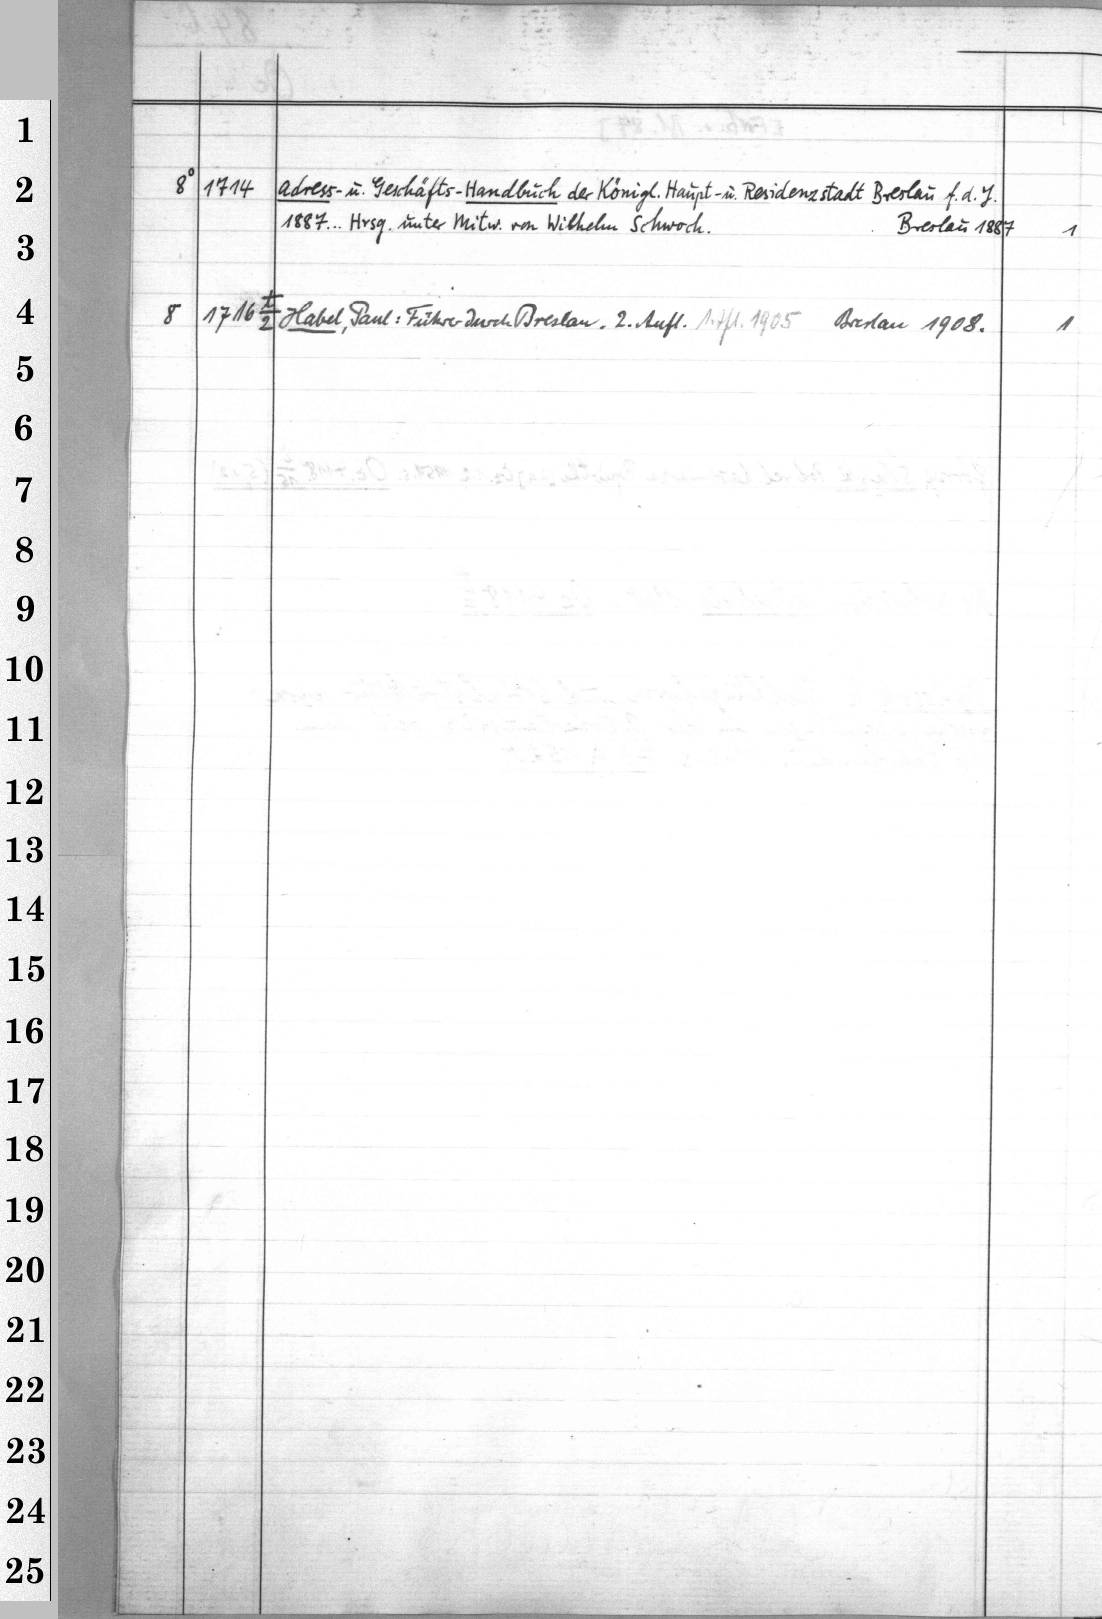 1
2
8° 1714 Adress- u. Geschäfts-Handbuch der Königl. Haupt- u. Residenzstadt Breslau f. d. J.
1887... Hrsg. unter Mitw. von Wilhelm Schwoch. Breslau 1887 1
3
4
8 1716 t/2 Habel, Paul: Führer durch Breslau. 2. Aufl. 1. Afl. 1905 Breslau 1908. 1
5
6
7
8
9
10
11
12
13
14
15
16
17
18
19
20
21
22
23
24
25